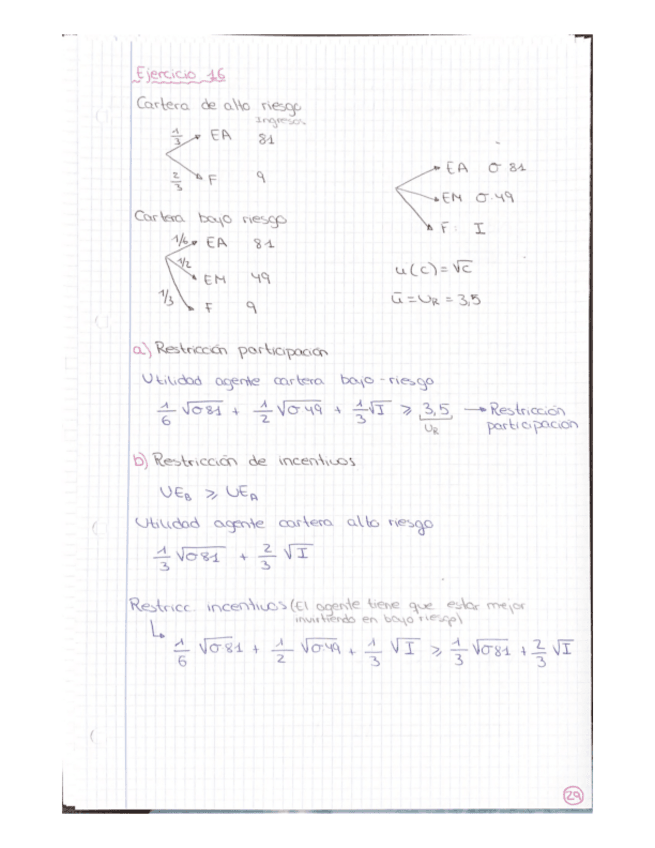 Ejercicio 16
Cartera de alto riesgo
Ingresos
1/3 EA 81
2/3 F 9
Cartera bajo riesgo
1/6 EA 81
1/2 EM 49
1/3 F 9
EA σ 81
EM σ·49
F: I
u(c) = √c
ū = U_R = 3,5
a) Restricción participación
Utilidad agente cartera bajo-riesgo
1/6 √σ81 + 1/2 √σ49 + 1/3 √I ⩾ 3,5 → Restricción
U_R participación
b) Restricción de incentivos
UE_B ⩾ UE_A
Utilidad agente cartera alto riesgo
1/3 √σ81 + 2/3 √I
Restricc. incentivos (El agente tiene que estar mejor
invirtiendo en bajo riesgo)
1/6 √σ81 + 1/2 √σ49 + 1/3 √I ⩾ 1/3 √σ81 + 2/3 √I
29